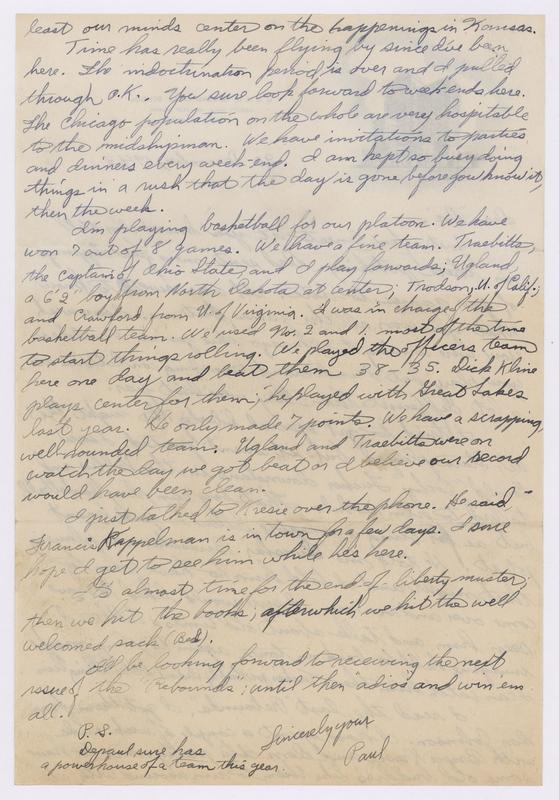 least our minds center on the happenings in Kansas.
Time has really been flying by since I've been
here. The indoctrination period is over and I pulled
through O.K.. You sure loop forward to week ends here.
The Chicago population on the whole are very hospitable
to the midshipman. We have invitations to parties
and dinners every week-end. I am kept so busy doing
things in a rush that the day is gone before you know it,
then the week.
I'm playing basketball for our platoon. We have
won 7 out of 8 games. We have a fine team. Traebitts,
the captain of Ohio State, and I play forwards; Ugland,
a 6'2" boy from North Dakota at center; Trodson, U. of Calif.;
and Crawford from U. of Virginia. I was in charge of the
basketball team. We used No. 2 and 1 most of the time
to start things rolling. We played the officers team
here one day and beat them 38-35. Dick Kline
plays center for them; he played with Great Lakes
last year. He only made 7 points. We have a scrapping,
well-rounded team. Ugland and Traebitts were on
watch the day we got beat or I believe our record
would have been clean.
I just talked to over the phone. He said
Francis Kappelman is in town for a few days. I sure
hope I get to see him while he's here.
It's almost time for the end of liberty muster;
then we hit the books; after which we hit the well
welcomed sack (Bed).
I'll be looking forward to receiving the next
issue of the "Rebounds"; until then "adios" and win 'em
all.
Sincerely your
Paul
P.S.
Depaul sure has
a powerhouse of a team this year.